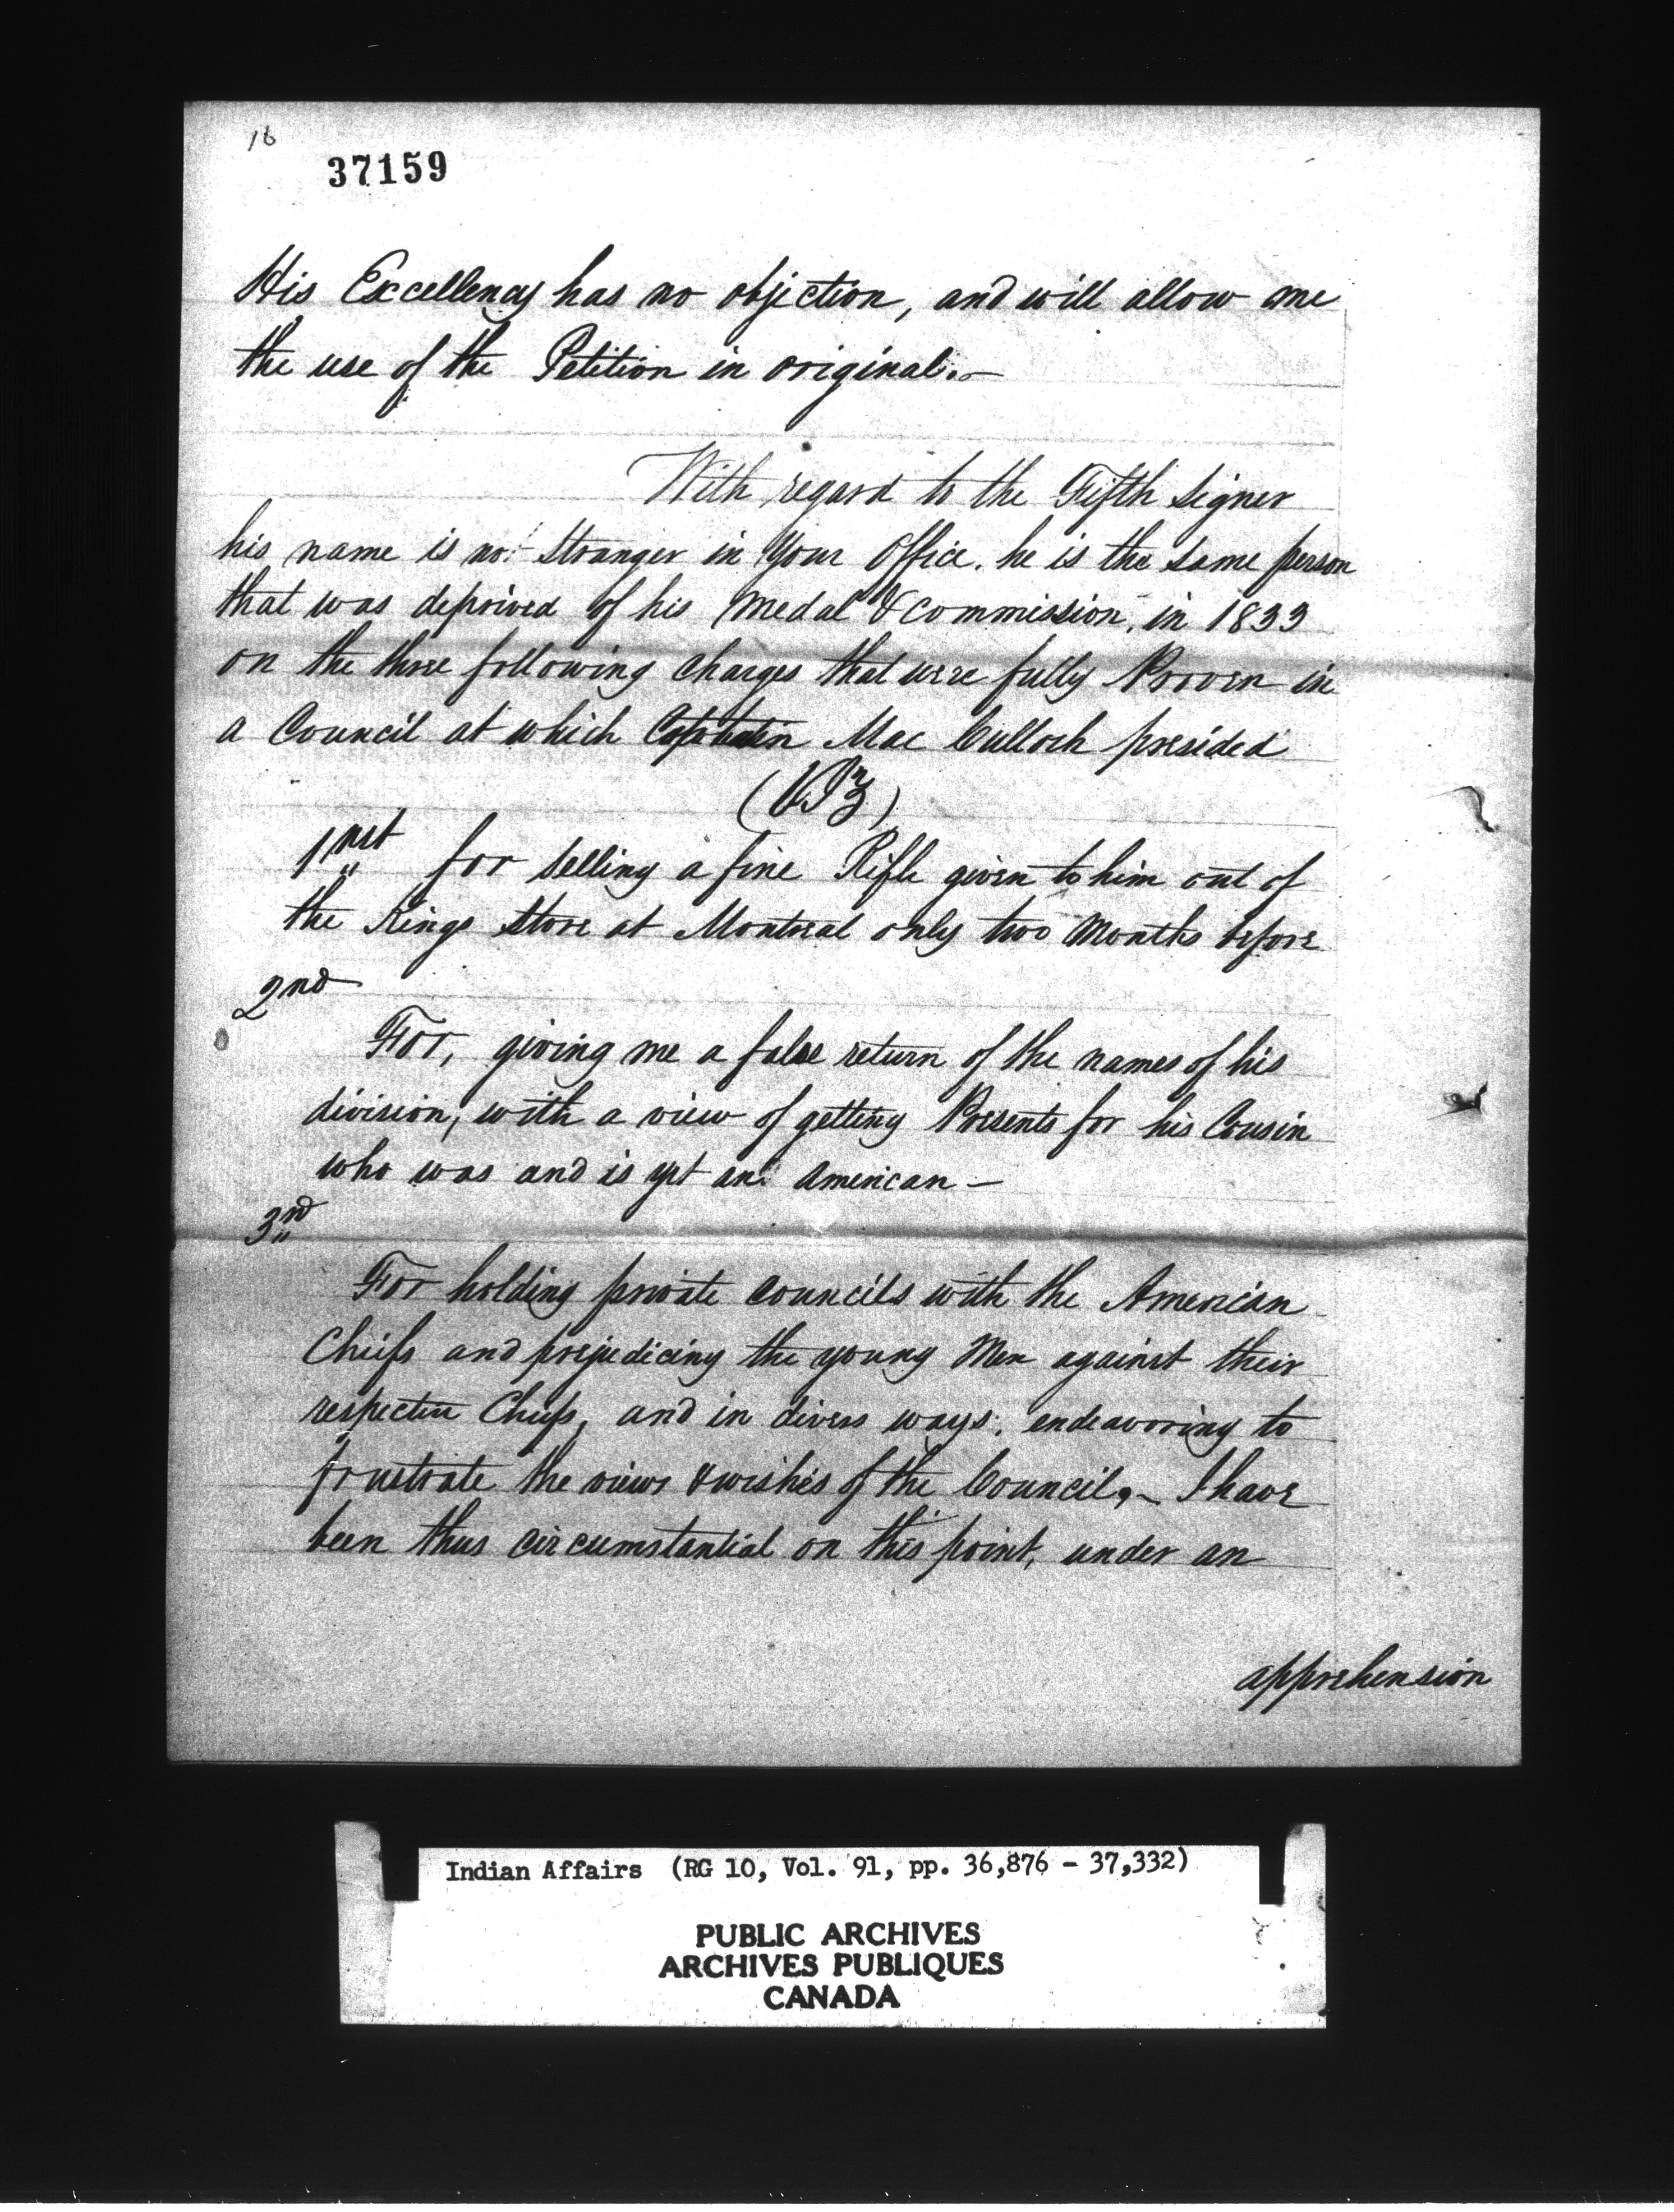 16
37159
His Excellency has no objection, and will allow me
the use of the Petition in original.—
With regard to the Fifth Signer
his name is no Stranger in Your Office. he is the same person
that was deprived of his Medal & Commission, in 1833
on the three following charges that were fully Proven in
a Council at which Captain Mac Culloch presided
(VIZ)
1rst for selling a fine Rifle given to him out of
the Kings Store at Montreal only two Months before
2nd
For, giving me a false return of the names of his
division, with a view of getting Presents for his Cousin
who was and is yet an American —
3rd
For holding private Councils with the American
Chiefs and prejudicing the young Men against their
respective Chiefs, and in divers ways, endeavoring to
frustrate the views & wishes of the Council,— I have
been thus circumstantial on this point, under an
apprehension
Indian Affairs (RG 10, Vol. 91, pp. 36,876 - 37,332)
PUBLIC ARCHIVES
ARCHIVES PUBLIQUES
CANADA